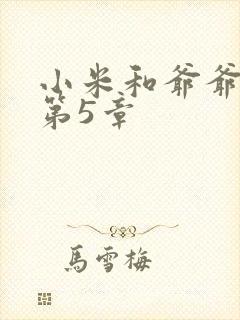 小米和爷爷
第5章
馬雪梅